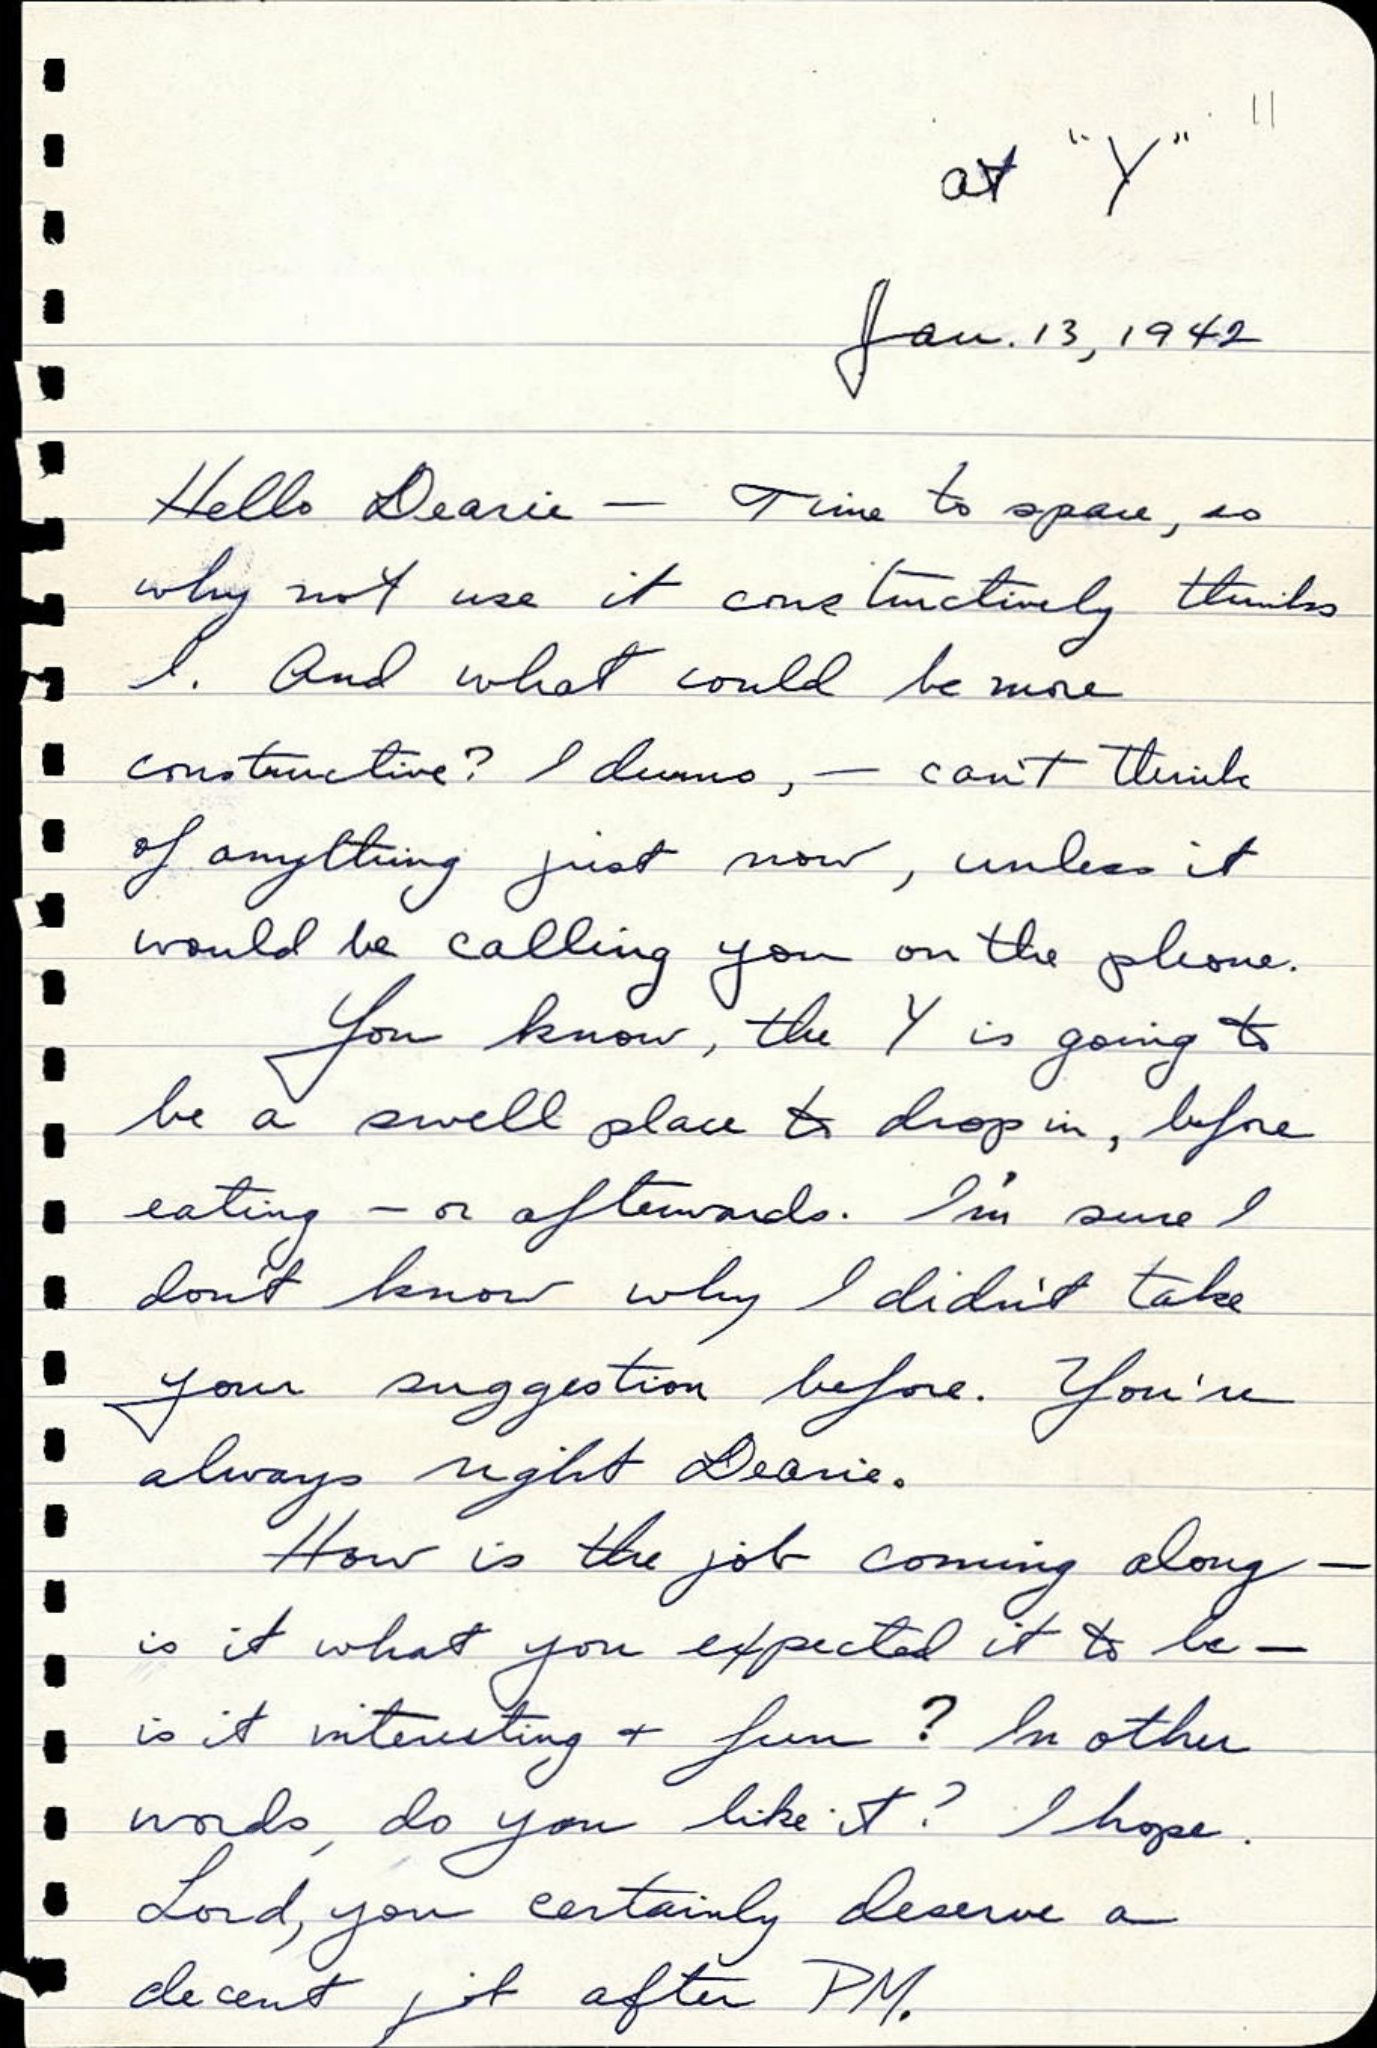 11
at "Y"
Jan. 13, 1942
Hello Dearie — Time to spare, so
why not use it constructively thinks
I. And what could be more
constructive? I dunno, — can't think
of anything just now, unless it
would be calling you on the phone.
You know, the Y is going to
be a swell place to drop in, before
eating — or afterwards. I'm sure I
don't know why I didn't take
your suggestion before. You're
always right Dearie.
How is the job coming along —
is it what you expected it to be —
is it interesting + fun? In other
words, do you like it? I hope.
Lord, you certainly deserve a
decent job after PM.